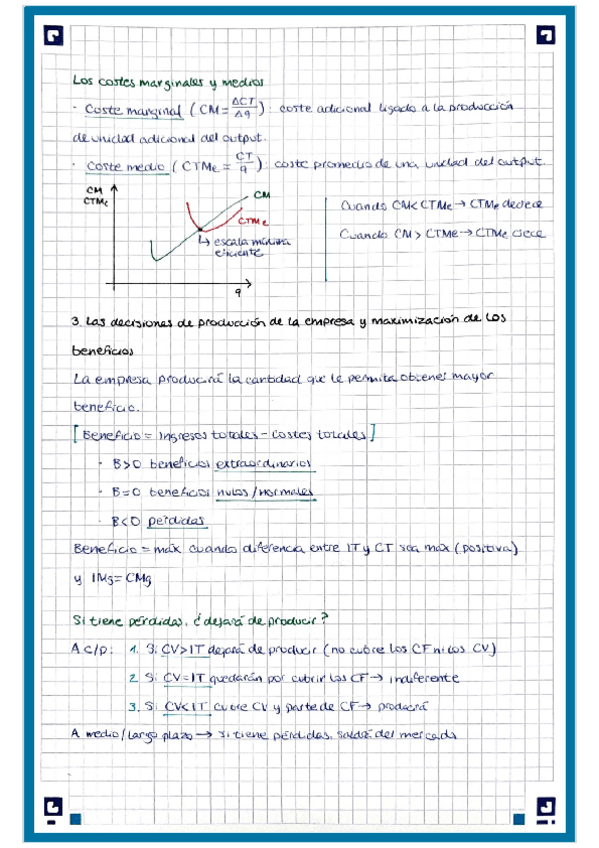 Los costes marginales y medios
- Coste marginal (CM = ΔCT/Δq): coste adicional ligado a la producción
de unidad adicional del output.
- Coste medio (CTMe = CT/q): coste promedio de una unidad del output.
CM
CTMe
CM
CTMe
↳ escala mínima
eficiente
q
Cuando CM < CTMe → CTMe decrece
Cuando CM > CTMe → CTMe crece
3. Las decisiones de producción de la empresa y maximización de los
beneficios
La empresa producirá la cantidad que le permita obtener mayor
beneficio.
[Beneficio = Ingresos totales - costes totales]
- B>0 beneficios extraordinarios
- B=0 beneficios nulos/normales
- B<0 pérdidas
Beneficio = máx cuando diferencia entre IT y CT sea max (positiva)
y IMg = CMg
Si tiene pérdidas, ¿dejará de producir?
A c/p: 1. Si CV>IT dejará de producir (no cubre los CF ni los CV)
2. Si CV=IT quedarán por cubrir los CF → indiferente
3. Si CV<IT cubre CV y parte de CF → producirá
A medio/largo plazo → si tiene pérdidas, saldrá del mercado